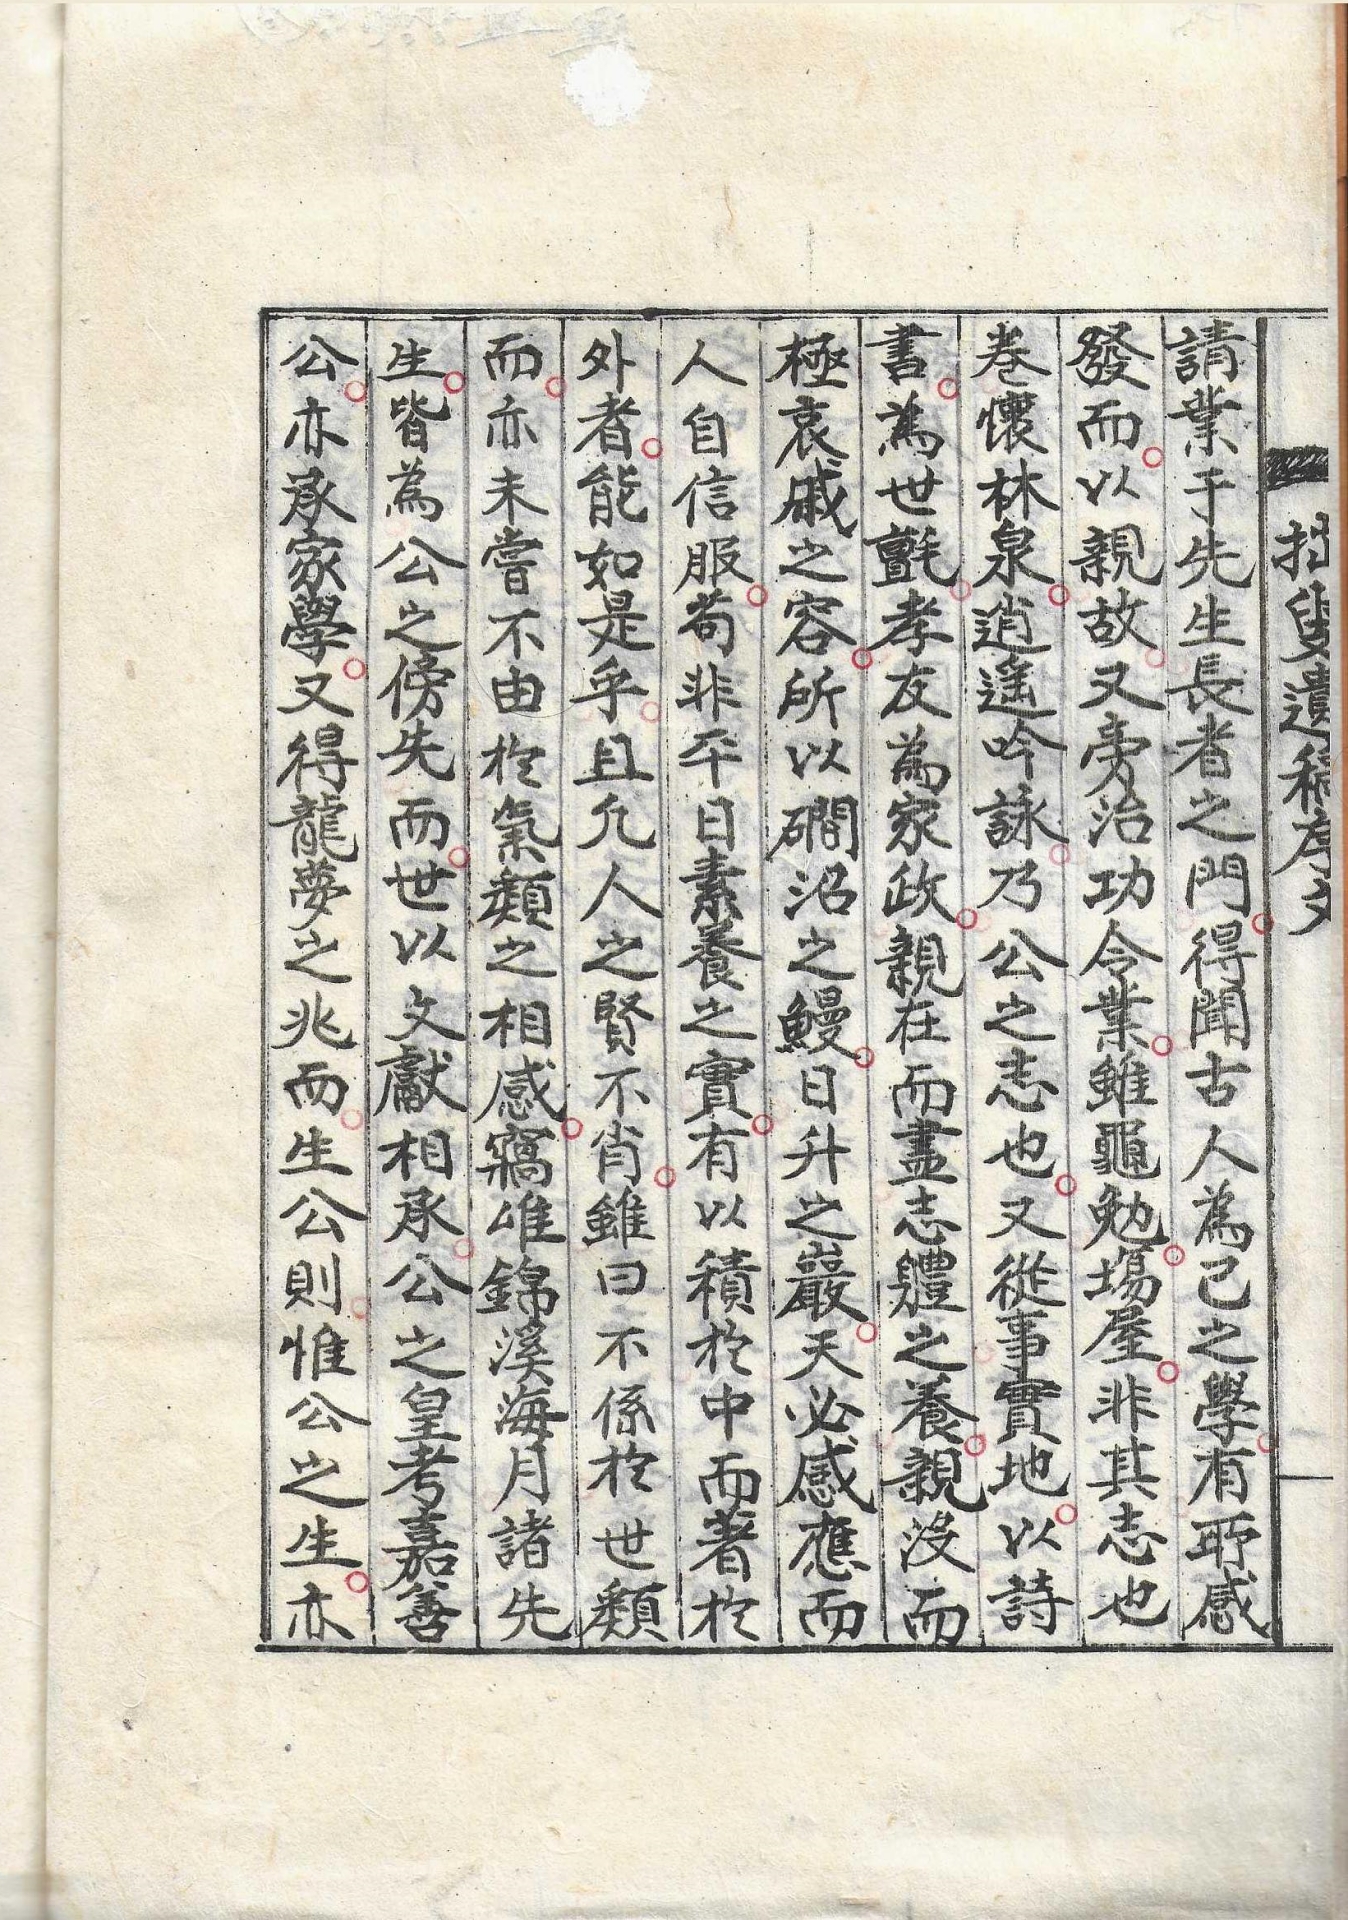 拙叟遺稿序文
請業于先生長者之門得聞古人為己之學有所感
發而以親故又旁治功令業雖黽勉場屋非其志也
巻懷林泉逍遙吟詠乃公之志也又從事實地以詩
書為世氈孝友為家政親在而盡志軆之養親沒而
極哀戚之容所以磵沼之鰻日升之巖天必感應而
人自信服苟非平日素養之實有以積於中而著於
外者能如是乎且凡人之賢不肖雖曰不係於世類
而亦未嘗不由於氣類之相感竊惟錦溪海月諸先
生皆為公之傍先而世以文獻相承公之皇考嘉善
公亦承家學又得龍夢之兆而生公則惟公之生亦